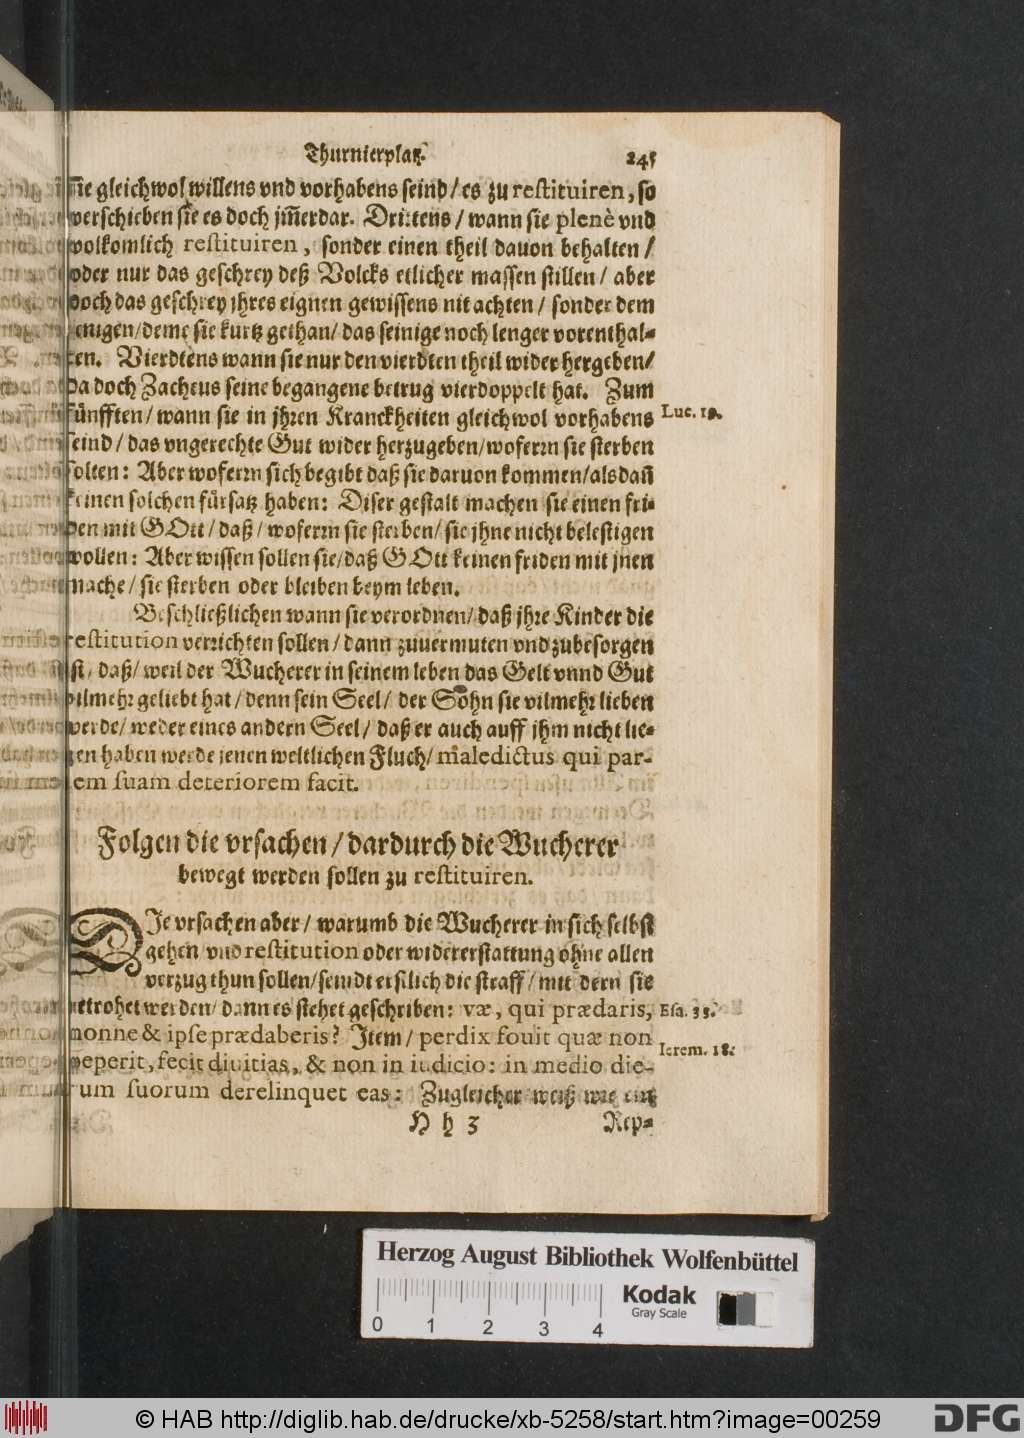 Thurnierplatz. 245
sie gleichwol willens vnd vorhabens seind / es zu restituiren, so
verschieben sie es doch jm̃erdar. Drittens / wann sie plenè vnd
volkomlich restituiren, sonder einen theil dauon behalten /
oder nur das geschrey deß Volcks etlicher massen stillen / aber
doch das geschrey jhres eignen gewissens nit achten / sonder dem
jenigen / deme sie kurtz gethan / das seinige noch lenger vorenthal-
ten. Vierdtens wann sie nur den vierdten theil wider hergeben /
da doch Zacheus seine begangene betrug vierdoppelt hat. Zum
fünfften / wann sie in jhren Kranckheiten gleichwol vorhabens
Luc. 19.
seind / das vngerechte Gut wider herzugeben / woferrn sie sterben
solten: Aber woferrn sich begibt daß sie daruon kommen / alsdañ
keinen solchen fürsatz haben: Diser gestalt machen sie einen fri-
den mit GOtt / daß / woferrn sie sterben / sie jhne nicht belestigen
wollen: Aber wissen sollen sie / daß GOtt keinen friden mit jnen
mache / sie sterben oder bleiben beym leben.
Beschließlichen wann sie verordnen / daß jhre Kinder die
restitution verrichten sollen / dann zuuermuten vnd zubesorgen
ist, daß / weil der Wucherer in seinem leben das Gelt vnnd Gut
vilmehr geliebt hat / denn sein Seel / der Sohn sie vilmehr lieben
werde / weder eines andern Seel / daß er auch auff jhm nicht lie-
gen haben werde jenen weltlichen Fluch / maledictus qui par-
tem suam deteriorem facit.
Folgen die vrsachen / dardurch die Wucherer
bewegt werden sollen zu restituiren.
DIe vrsachen aber / warumb die Wucherer in sich selbst
gehen vnd restitution oder widererstattung ohne allen
verzug thun sollen / seindt erstlich die straff / mit dern sie
betrohet werden / dann es stehet geschriben: væ, qui prædaris,
Esa. 33.
nonne & ipse prædaberis? Item / perdix fouit quæ non
Ierem. 18.
peperit, fecit diuitias, & non in iudicio: in medio die-
rum suorum derelinquet eas: Zugleicher weiß wie ein
Hh 3 Rep-
Herzog August Bibliothek Wolfenbüttel
Kodak
Gray Scale
0 1 2 3 4
© HAB http://diglib.hab.de/drucke/xb-5258/start.htm?image=00259
DFG